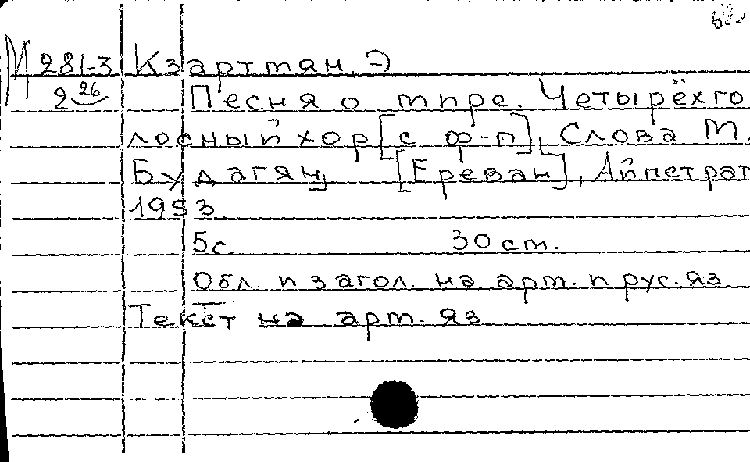 М 281-3 Кзартмян, Э
2 26
Песня о мире. Четырёхго
лосный хор [с ф-п], Слова М.
Будагян, [Ереван], Айпетрат
1953.
5с. 30 см.
Обл. и загол. на арм. и рус. яз
Текст на арм. яз